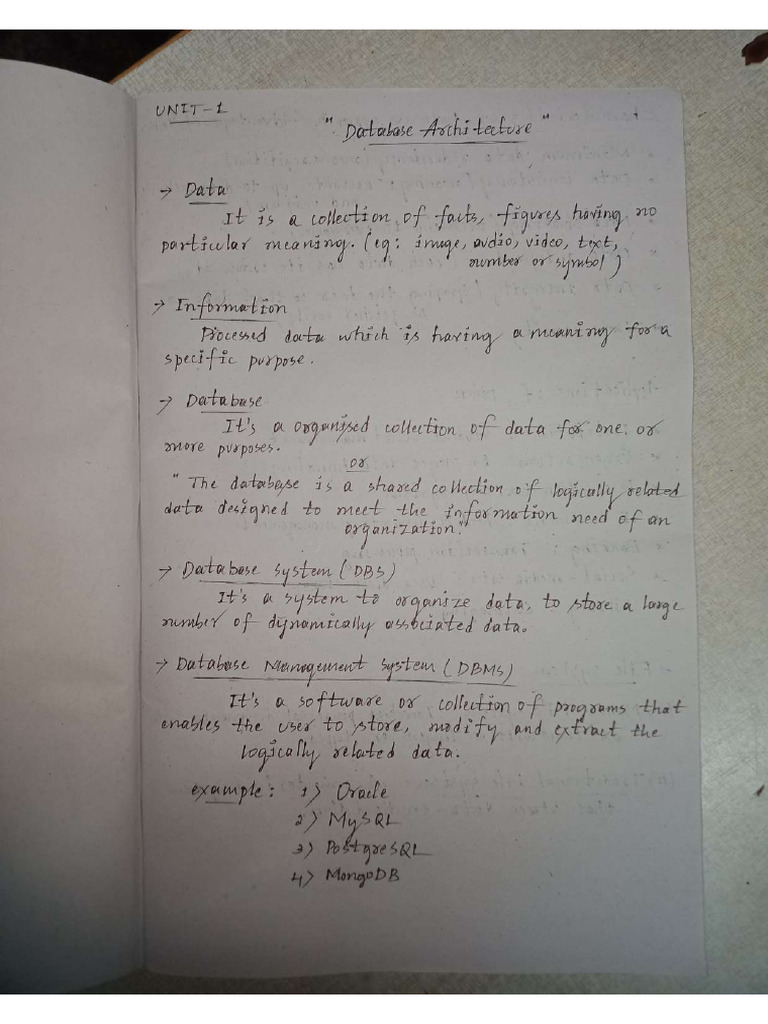 UNIT-1
"Database Architecture"
→ Data
It is a collection of facts, figures having no
particular meaning. (eg: image, audio, video, text,
number or symbol)
→ Information
Processed data which is having a meaning for a
specific purpose.
→ Database
It's a organised collection of data for one or
more purposes.
or
"The database is a shared collection of logically related
data designed to meet the information need of an
organization."
→ Database System (DBS)
It's a system to organize data, to store a large
number of dynamically associated data.
→ Database Management System (DBMS)
It's a software or collection of programs that
enables the user to store, modify and extract the
logically related data.
example: 1) Oracle
2) MySQL
3) PostgreSQL
4) MongoDB